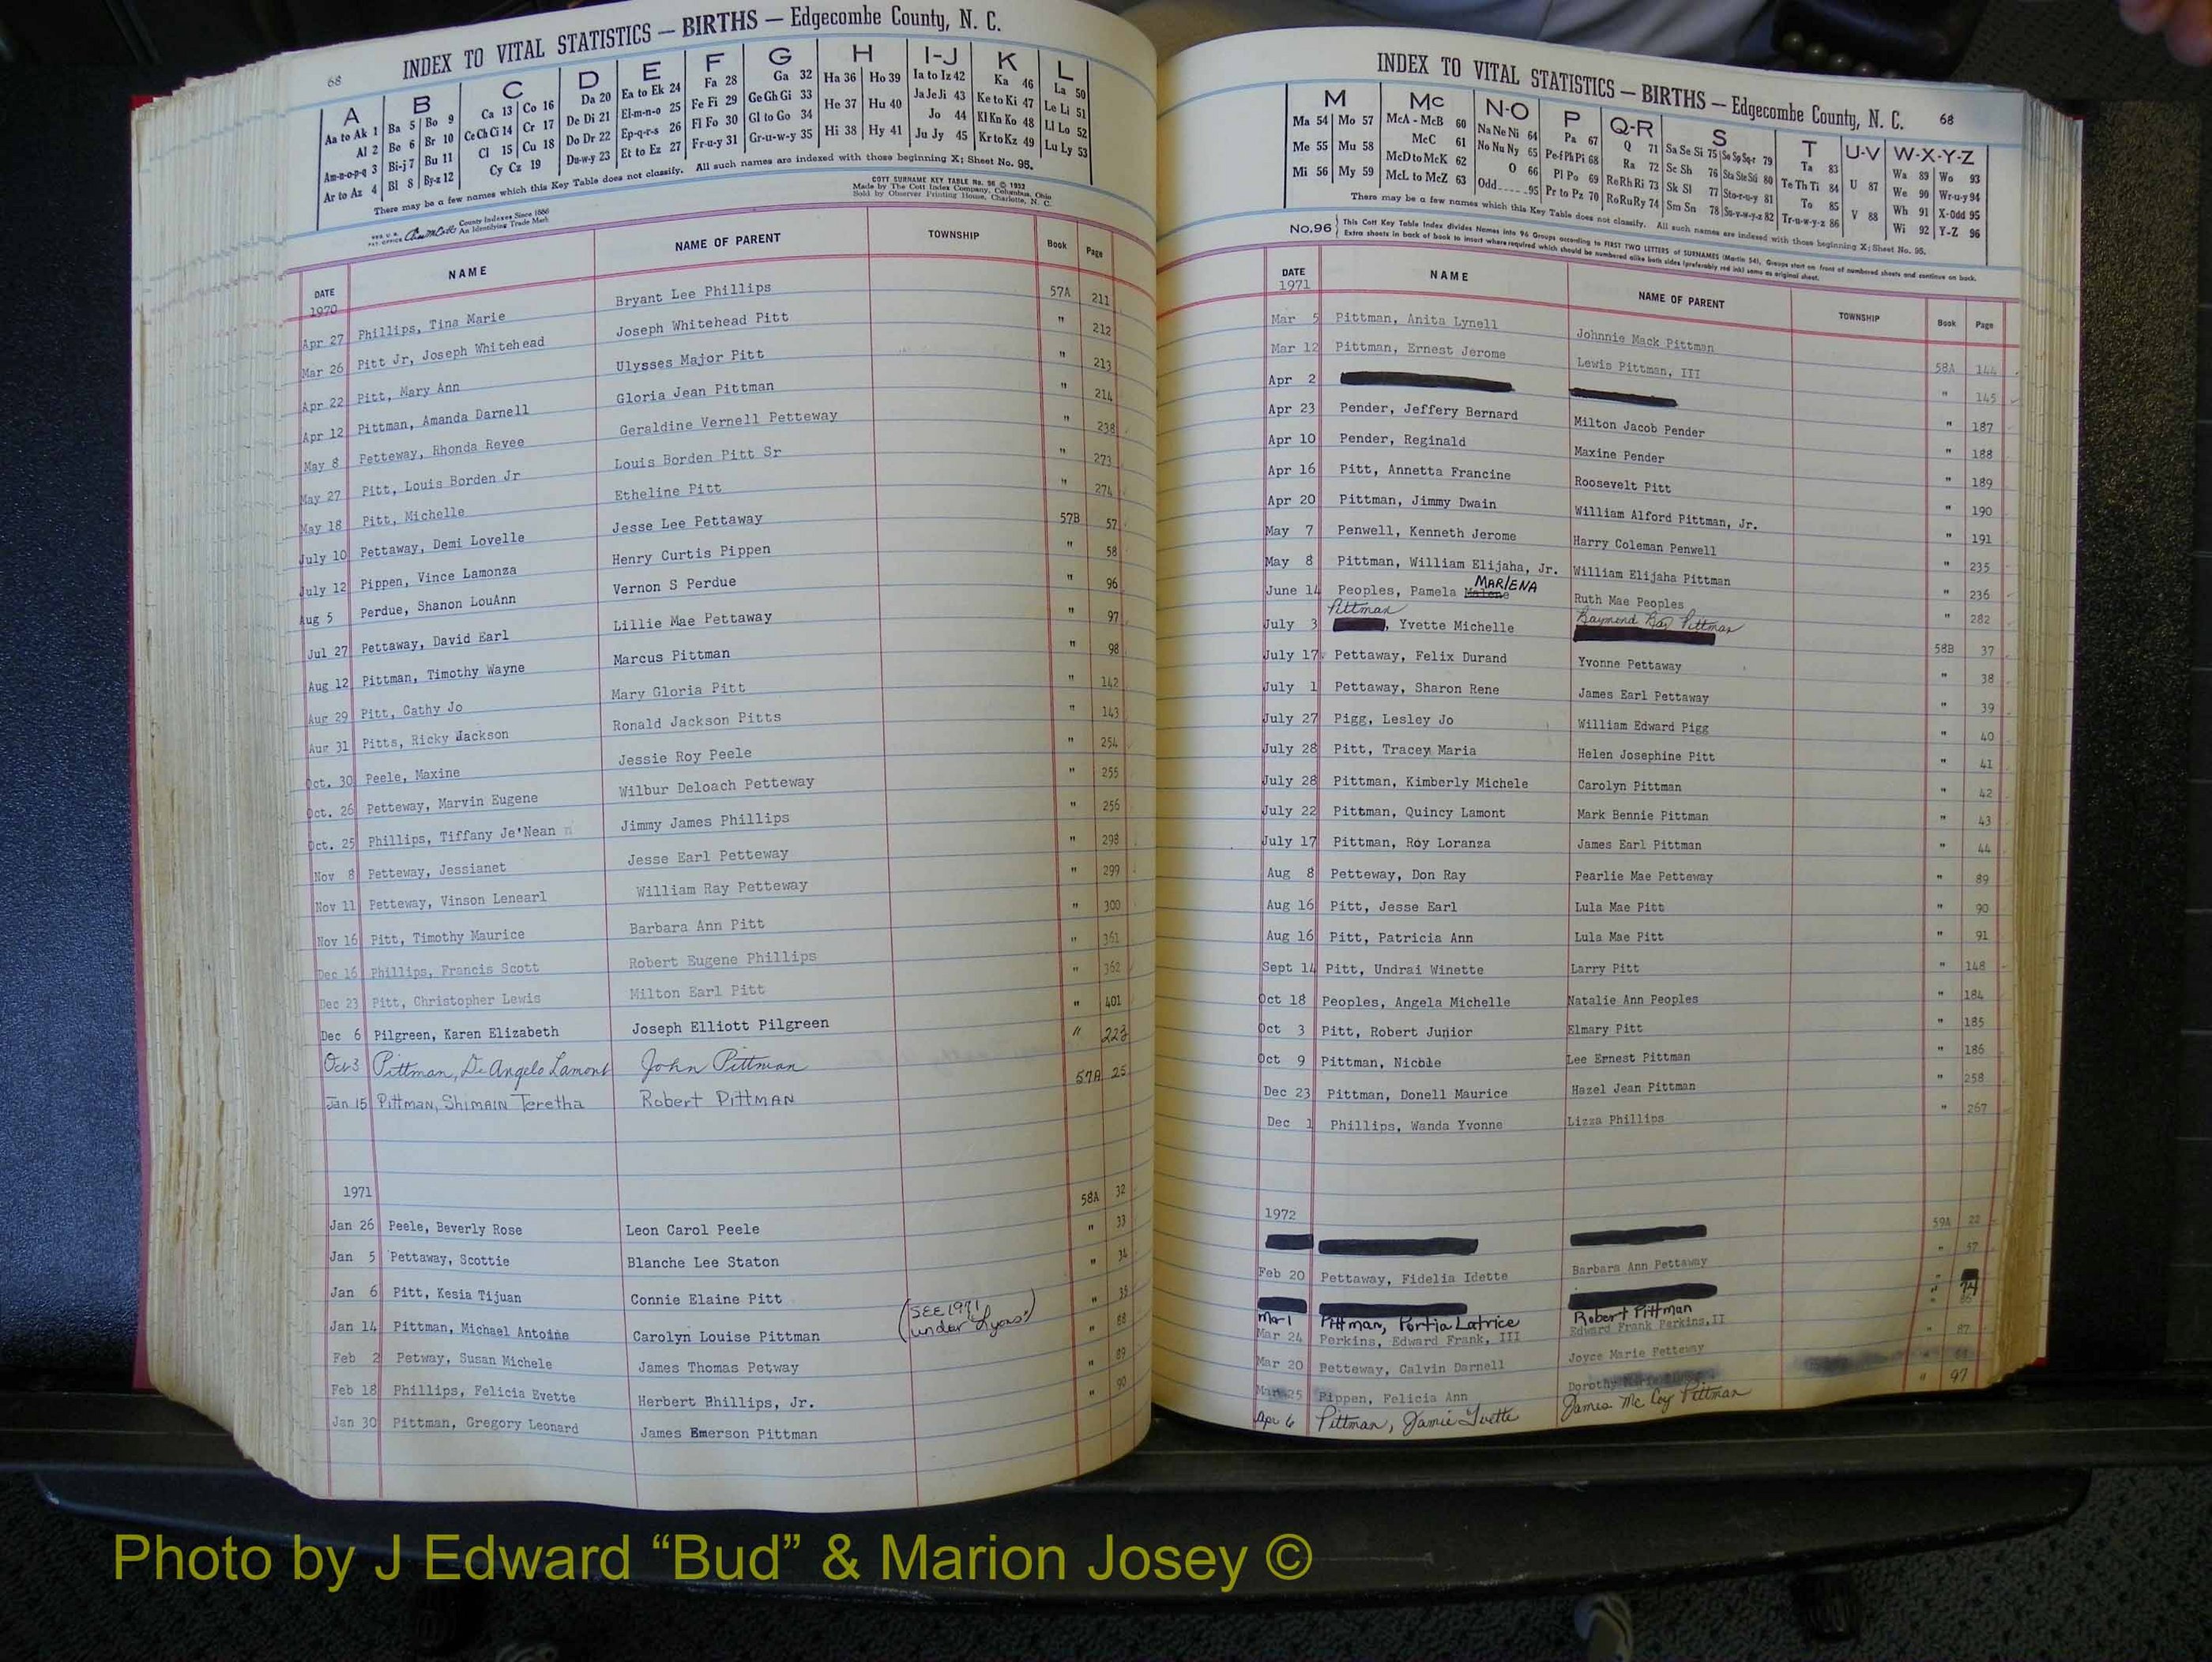 68
INDEX TO VITAL STATISTICS — BIRTHS — Edgecombe County, N. C.
A B C D E F G H I-J K L
Aa to Ak 1 Ba 5 Bo 9 Ca 13 Co 16 Da 20 Ea to Ek 24 Fa 28 Ga 32 Ha 36 Ho 39 Ia to Iz 42 Ka 46 La 50
Al 2 Be 6 Br 10 Ce Ch Ci 14 Cr 17 De Di 21 El-m-n-o 25 Fe Fi 29 Ge Gh Gi 33 He 37 Hu 40 Ja Je Ji 43 Ke to Ki 47 Le Li 51
Am-n-o-p-q 3 Bi-j 7 Bu 11 Cl 15 Cu 18 Do Dr 22 Ep-q-r-s 26 Fl Fo 30 Gl to Go 34 Hi 38 Hy 41 Jo 44 Kl Kn Ko 48 Ll Lo 52
Ar to Az 4 Bl 8 By-z 12 Cy Cz 19 Du-w-y 23 Et to Ez 27 Fr-u-y 31 Gr-u-w-y 35 Ju Jy 45 Kr to Kz 49 Lu Ly 53
There may be a few names which this Key Table does not classify. All such names are indexed with those beginning X; Sheet No. 95.
County Indexes Since 1888
An Identifying Trade Mark
COTT SURNAME KEY TABLE No. 96 © 1952
Made by The Cott Index Company, Columbus, Ohio
Sold by Observer Printing House, Charlotte, N. C.
DATE NAME NAME OF PARENT TOWNSHIP Book Page
1970
Apr 27 Phillips, Tina Marie Bryant Lee Phillips 57A 211
Mar 26 Pitt Jr, Joseph Whitehead Joseph Whitehead Pitt " 212
Apr 22 Pitt, Mary Ann Ulysses Major Pitt " 213
Apr 12 Pittman, Amanda Darnell Gloria Jean Pittman " 214
May 8 Petteway, Rhonda Revee Geraldine Vernell Petteway " 238
May 27 Pitt, Louis Borden Jr Louis Borden Pitt Sr " 273
May 18 Pitt, Michelle Etheline Pitt " 274
July 10 Pettaway, Demi Lovelle Jesse Lee Pettaway 57B 57
July 12 Pippen, Vince Lamonza Henry Curtis Pippen " 58
Aug 5 Perdue, Shanon LouAnn Vernon S Perdue " 96
Jul 27 Pettaway, David Earl Lillie Mae Pettaway " 97
Aug 12 Pittman, Timothy Wayne Marcus Pittman " 98
Aug 29 Pitt, Cathy Jo Mary Gloria Pitt " 142
Aug 31 Pitts, Ricky Jackson Ronald Jackson Pitts " 143
Oct. 30 Peele, Maxine Jessie Roy Peele " 254
Oct. 26 Petteway, Marvin Eugene Wilbur Deloach Petteway " 255
Oct. 25 Phillips, Tiffany Je'Nean Jimmy James Phillips " 256
Nov 8 Petteway, Jessianet Jesse Earl Petteway " 298
Nov 11 Petteway, Vinson Lenearl William Ray Petteway " 299
Nov 16 Pitt, Timothy Maurice Barbara Ann Pitt " 300
Dec 16 Phillips, Francis Scott Robert Eugene Phillips " 361
Dec 23 Pitt, Christopher Lewis Milton Earl Pitt " 362
Dec 6 Pilgreen, Karen Elizabeth Joseph Elliott Pilgreen " 401
Oct 3 Pittman, De Angelo Lamont John Pittman " 223
Jan 15 Pittman, Shimain Teretha Robert Pittman 57A 25
1971
Jan 26 Peele, Beverly Rose Leon Carol Peele 58A 32
Jan 5 Pettaway, Scottie Blanche Lee Staton " 33
Jan 6 Pitt, Kesia Tijuan Connie Elaine Pitt " 34
Jan 14 Pittman, Michael Antoine Carolyn Louise Pittman (SEE 1971 under Lyons) " 35
Feb 2 Petway, Susan Michele James Thomas Petway " 88
Feb 18 Phillips, Felicia Evette Herbert Phillips, Jr. " 89
Jan 30 Pittman, Gregory Leonard James Emerson Pittman " 90
INDEX TO VITAL STATISTICS — BIRTHS — Edgecombe County, N. C. 68
M Mc N-O P Q-R S T U-V W-X-Y-Z
Ma 54 Mo 57 McA - McB 60 Na Ne Ni 64 Pa 67 Q 71 Sa Se Si 75 So Sp Sq-r 79 Ta 83 U 87 Wa 89 Wo 93
Me 55 Mu 58 McC 61 No Nu Ny 65 Pe-f Ph Pi 68 Ra 72 Sc Sh 76 Sta Ste Sti 80 Te Th Ti 84 V 88 We 90 Wr-u-y 94
Mi 56 My 59 McD to McK 62 O 66 Pl Po 69 Re Rh Ri 73 Sk Sl 77 Sto-r-u-y 81 To 85 Wh 91 X-Odd 95
McL to McZ 63 Odd 95 Pr to Pz 70 Ro Ru Ry 74 Sm Sn 78 Su-v-w-y-z 82 Tr-u-w-y-z 86 Wi 92 Y-Z 96
There may be a few names which this Key Table does not classify. All such names are indexed with those beginning X; Sheet No. 95.
No.96 This Cott Key Table Index divides Names into 96 Groups according to FIRST TWO LETTERS of SURNAMES (Martin 54), Groups start on front of numbered sheets and continue on back.
Extra sheets in back of book to insert where required which should be numbered alike both sides (preferably red ink) same as original sheet.
DATE NAME NAME OF PARENT TOWNSHIP Book Page
1971
Mar 5 Pittman, Anita Lynell Johnnie Mack Pittman 58A 144
Mar 12 Pittman, Ernest Jerome Lewis Pittman, III " 145
Apr 2 " 187
Apr 23 Pender, Jeffery Bernard Milton Jacob Pender " 188
Apr 10 Pender, Reginald Maxine Pender " 189
Apr 16 Pitt, Annetta Francine Roosevelt Pitt " 190
Apr 20 Pittman, Jimmy Dwain William Alford Pittman, Jr. " 191
May 7 Penwell, Kenneth Jerome Harry Coleman Penwell " 235
May 8 Pittman, William Elijaha, Jr. William Elijaha Pittman " 236
June 14 Peoples, Pamela MARLENA Ruth Mae Peoples " 282
July 3 Pittman, Yvette Michelle Raymond Ray Pittman 58B 37
July 17 Pettaway, Felix Durand Yvonne Pettaway " 38
July 1 Pettaway, Sharon Rene James Earl Pettaway " 39
July 27 Pigg, Lesley Jo William Edward Pigg " 40
July 28 Pitt, Tracey Maria Helen Josephine Pitt " 41
July 28 Pittman, Kimberly Michele Carolyn Pittman " 42
July 22 Pittman, Quincy Lamont Mark Bennie Pittman " 43
July 17 Pittman, Roy Loranza James Earl Pittman " 44
Aug 8 Petteway, Don Ray Pearlie Mae Petteway " 89
Aug 16 Pitt, Jesse Earl Lula Mae Pitt " 90
Aug 16 Pitt, Patricia Ann Lula Mae Pitt " 91
Sept 14 Pitt, Undrai Winette Larry Pitt " 148
Oct 18 Peoples, Angela Michelle Natalie Ann Peoples " 184
Oct 3 Pitt, Robert Junior Elmary Pitt " 185
Oct 9 Pittman, Nicole Lee Ernest Pittman " 186
Dec 23 Pittman, Donell Maurice Hazel Jean Pittman " 258
Dec 1 Phillips, Wanda Yvonne Lizza Phillips " 267
1972
59A 22
Feb 20 Pettaway, Fidelia Idette Barbara Ann Pettaway " 57
Mar 1 Pittman, Portia Latrice Robert Pittman " 74
Mar 24 Perkins, Edward Frank, III Edward Frank Perkins, II "
Mar 20 Petteway, Calvin Darnell Joyce Marie Petteway " 87
Mar 25 Pippen, Felicia Ann Dorothy
Apr 6 Pittman, Jamie Yvette James Mc Coy Pittman " 97
Photo by J Edward “Bud” & Marion Josey ©